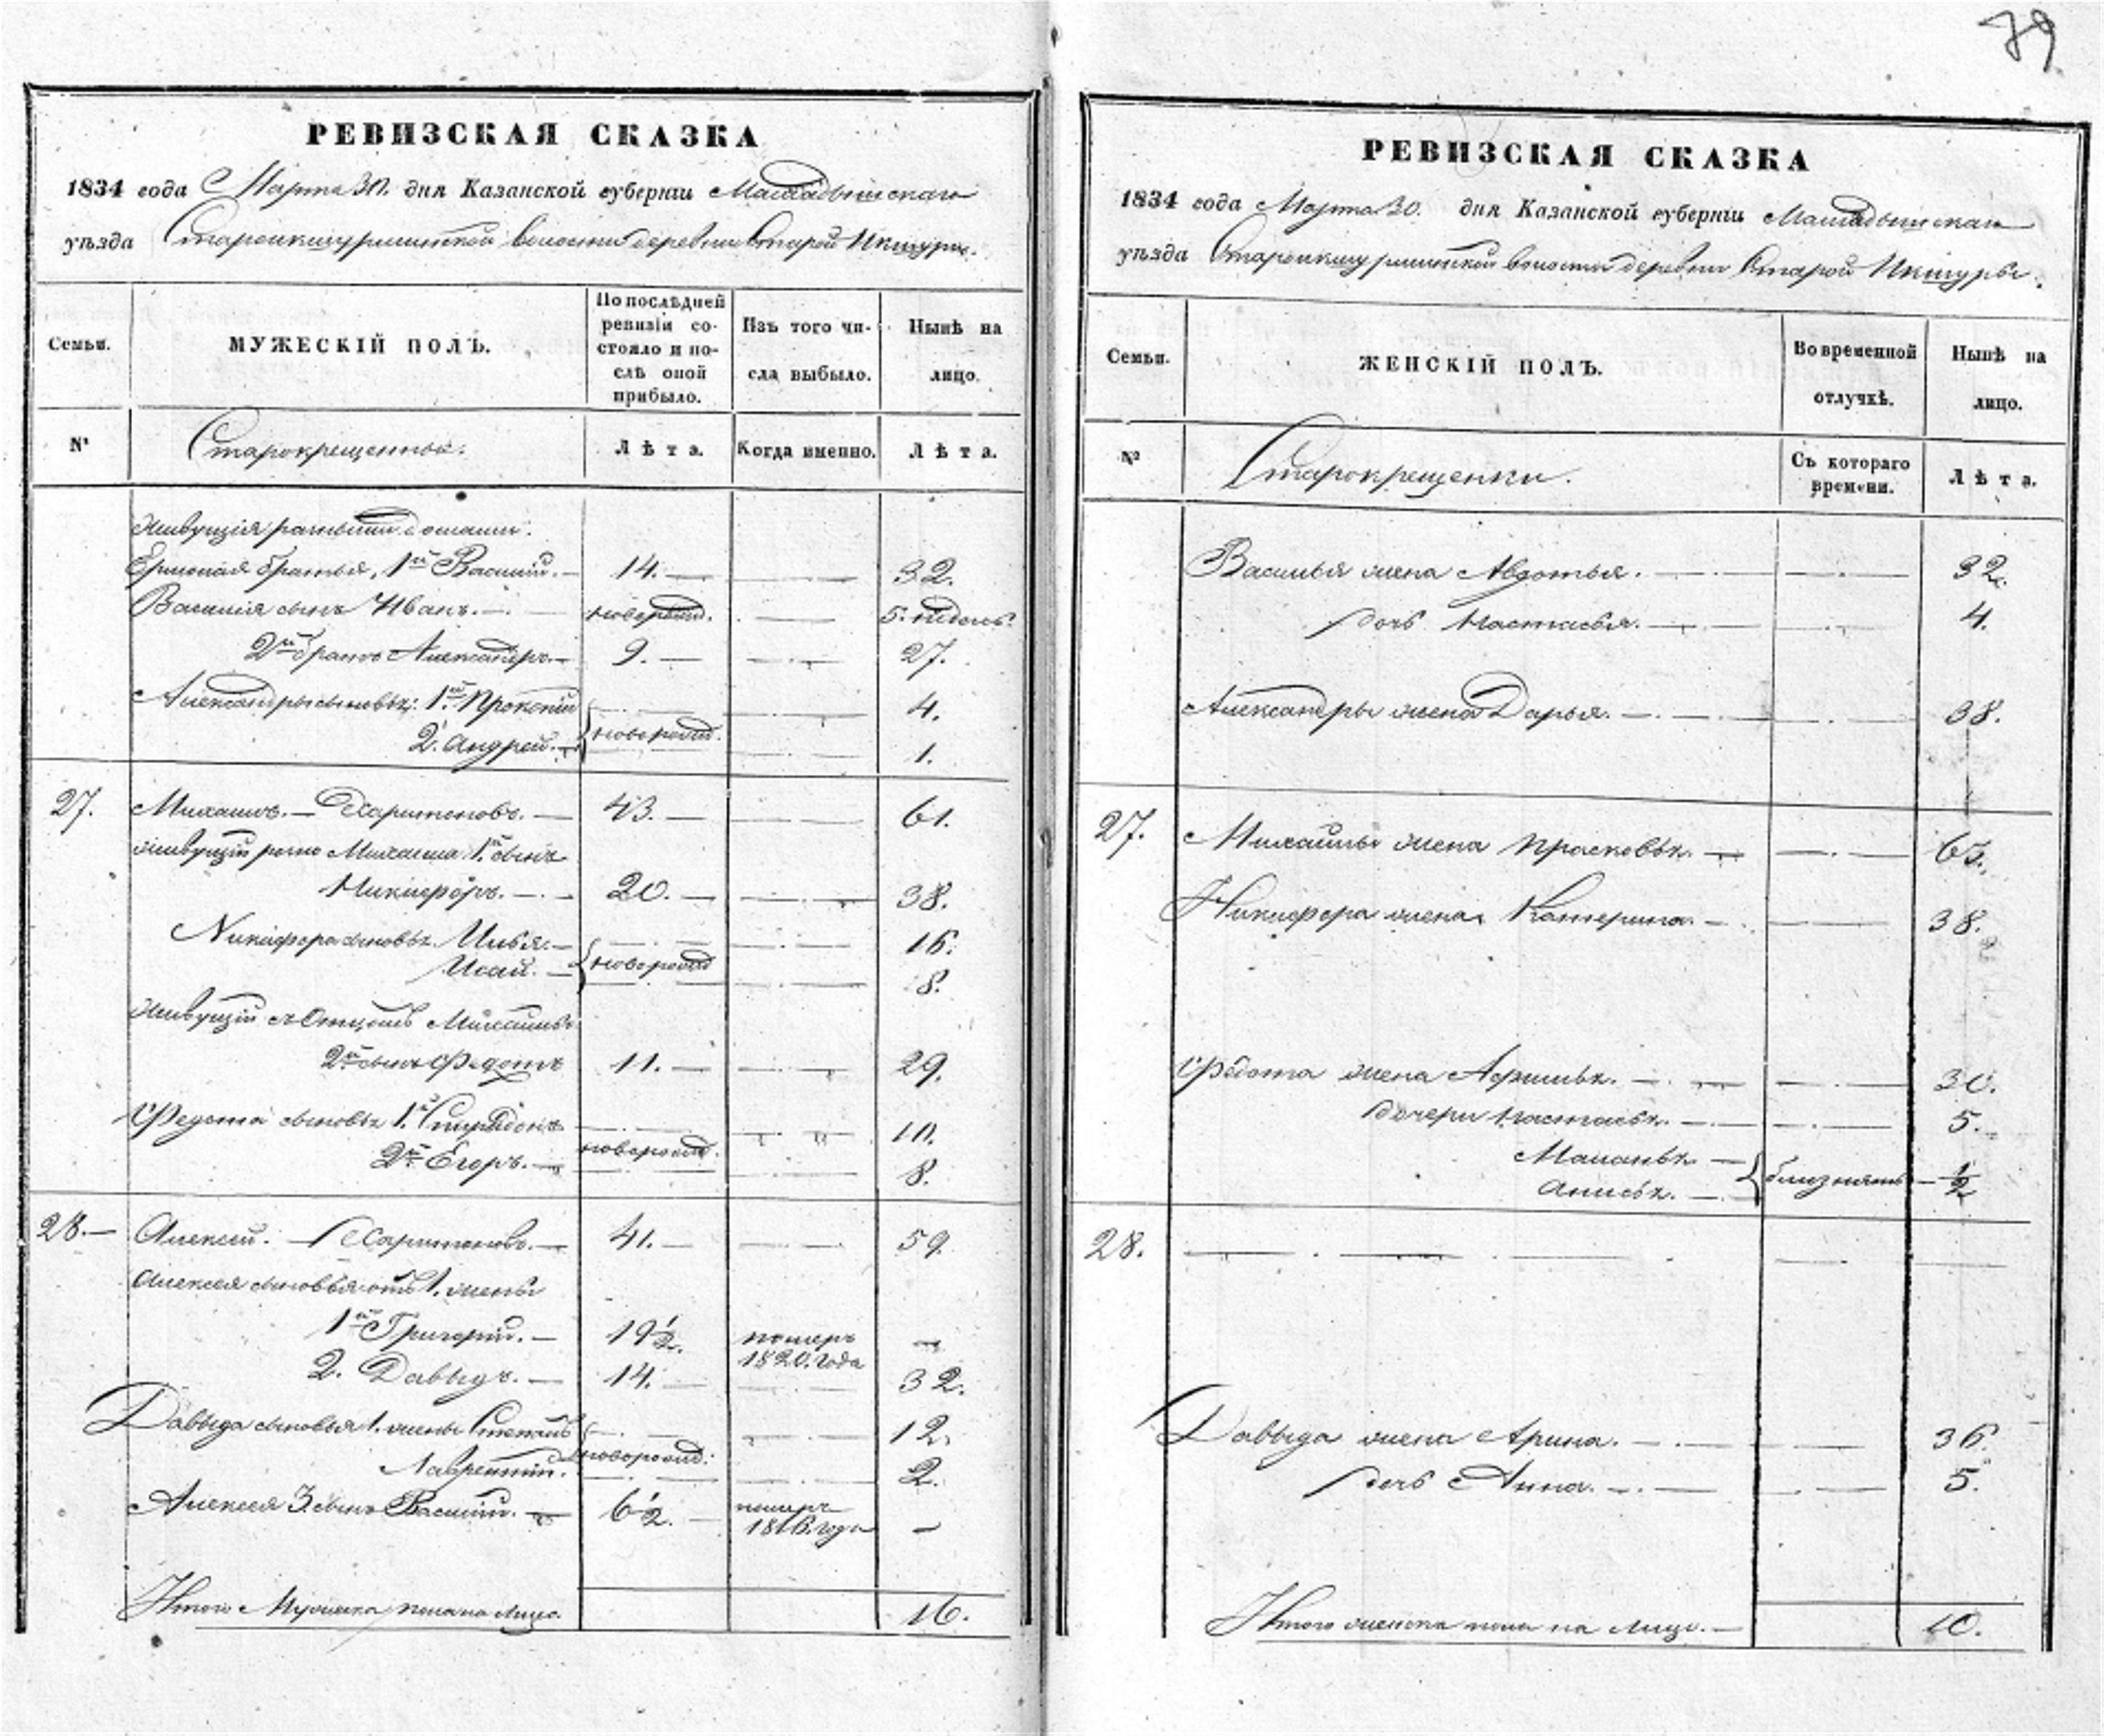 79
РЕВИЗСКАЯ СКАЗКА
1834 года Марта 30. дня Казанской губернiи Мамадышскаго
уѣзда Староикшурминской волости деревни Старой Икшурмы.
Семьи.
МУЖЕСКІЙ ПОЛЪ.
По послѣдней ревизіи состояло и послѣ оной прибыло.
Изъ того числа выбыло.
Нынѣ на лицо.
№
Старокрещенные.
Лѣта.
Когда именно.
Лѣта.
Живущія разными домами.
братья, 1й Василий. 14. 32.
Василія сынъ Иванъ. новорожд. 5. недель.
2й братъ Александръ 9. 27.
Александры сыновья: 1й Прокопий 4.
2. Андрей. новорожд. 1.
27. Михаилъ. Харитоновъ. 43. 61.
живущій розно Михаила 1й сынъ
Никифоръ. 20. 38.
Никифора сыновья Илья. 16.
Исай. новорожд 8.
Живущій съ Отцомъ Михаиломъ
2й сынъ Федотъ 11. 29.
Федота сыновья 1й Спиридонъ 10.
2й Егоръ. новорожд. 8.
28. Алексей. Харитоновъ. 41. 59.
Алексея сыновья отъ 1. жены
1й Григорий. 19½. померъ 1820. года
2. Давыдъ. 14. 32.
Давыда сыновья 1. жены Степанъ 12.
Лаврентий. новорожд. 2.
Алексея 3. сынъ Василий. 6½. померъ 1816. года
Итого Мужеска пола на Лицо. 16.
РЕВИЗСКАЯ СКАЗКА
1834 года Марта 30. дня Казанской губернiи Мамадышскаго
уѣзда Староикшурминской волости деревни Старой Икшурмы.
Семьи.
ЖЕНСКІЙ ПОЛЪ.
Во временной отлучкѣ.
Нынѣ на лицо.
№
Старокрещенки.
Съ котораго времени.
Лѣта.
Василья жена Авдотья. 32.
дочь Настасья. 4.
Александры жена Дарья. 38.
27. Михаилы жена Прасковья. 63.
Никифора жена Катерина. 38.
Федота жена Афимья. 30.
дочери Настасья. 5.
Маланья
Анисья. близняты ½
28.
Давыда жена Арина. 36.
дочь Анна. 5.
Итого женска пола на Лицо. 10.